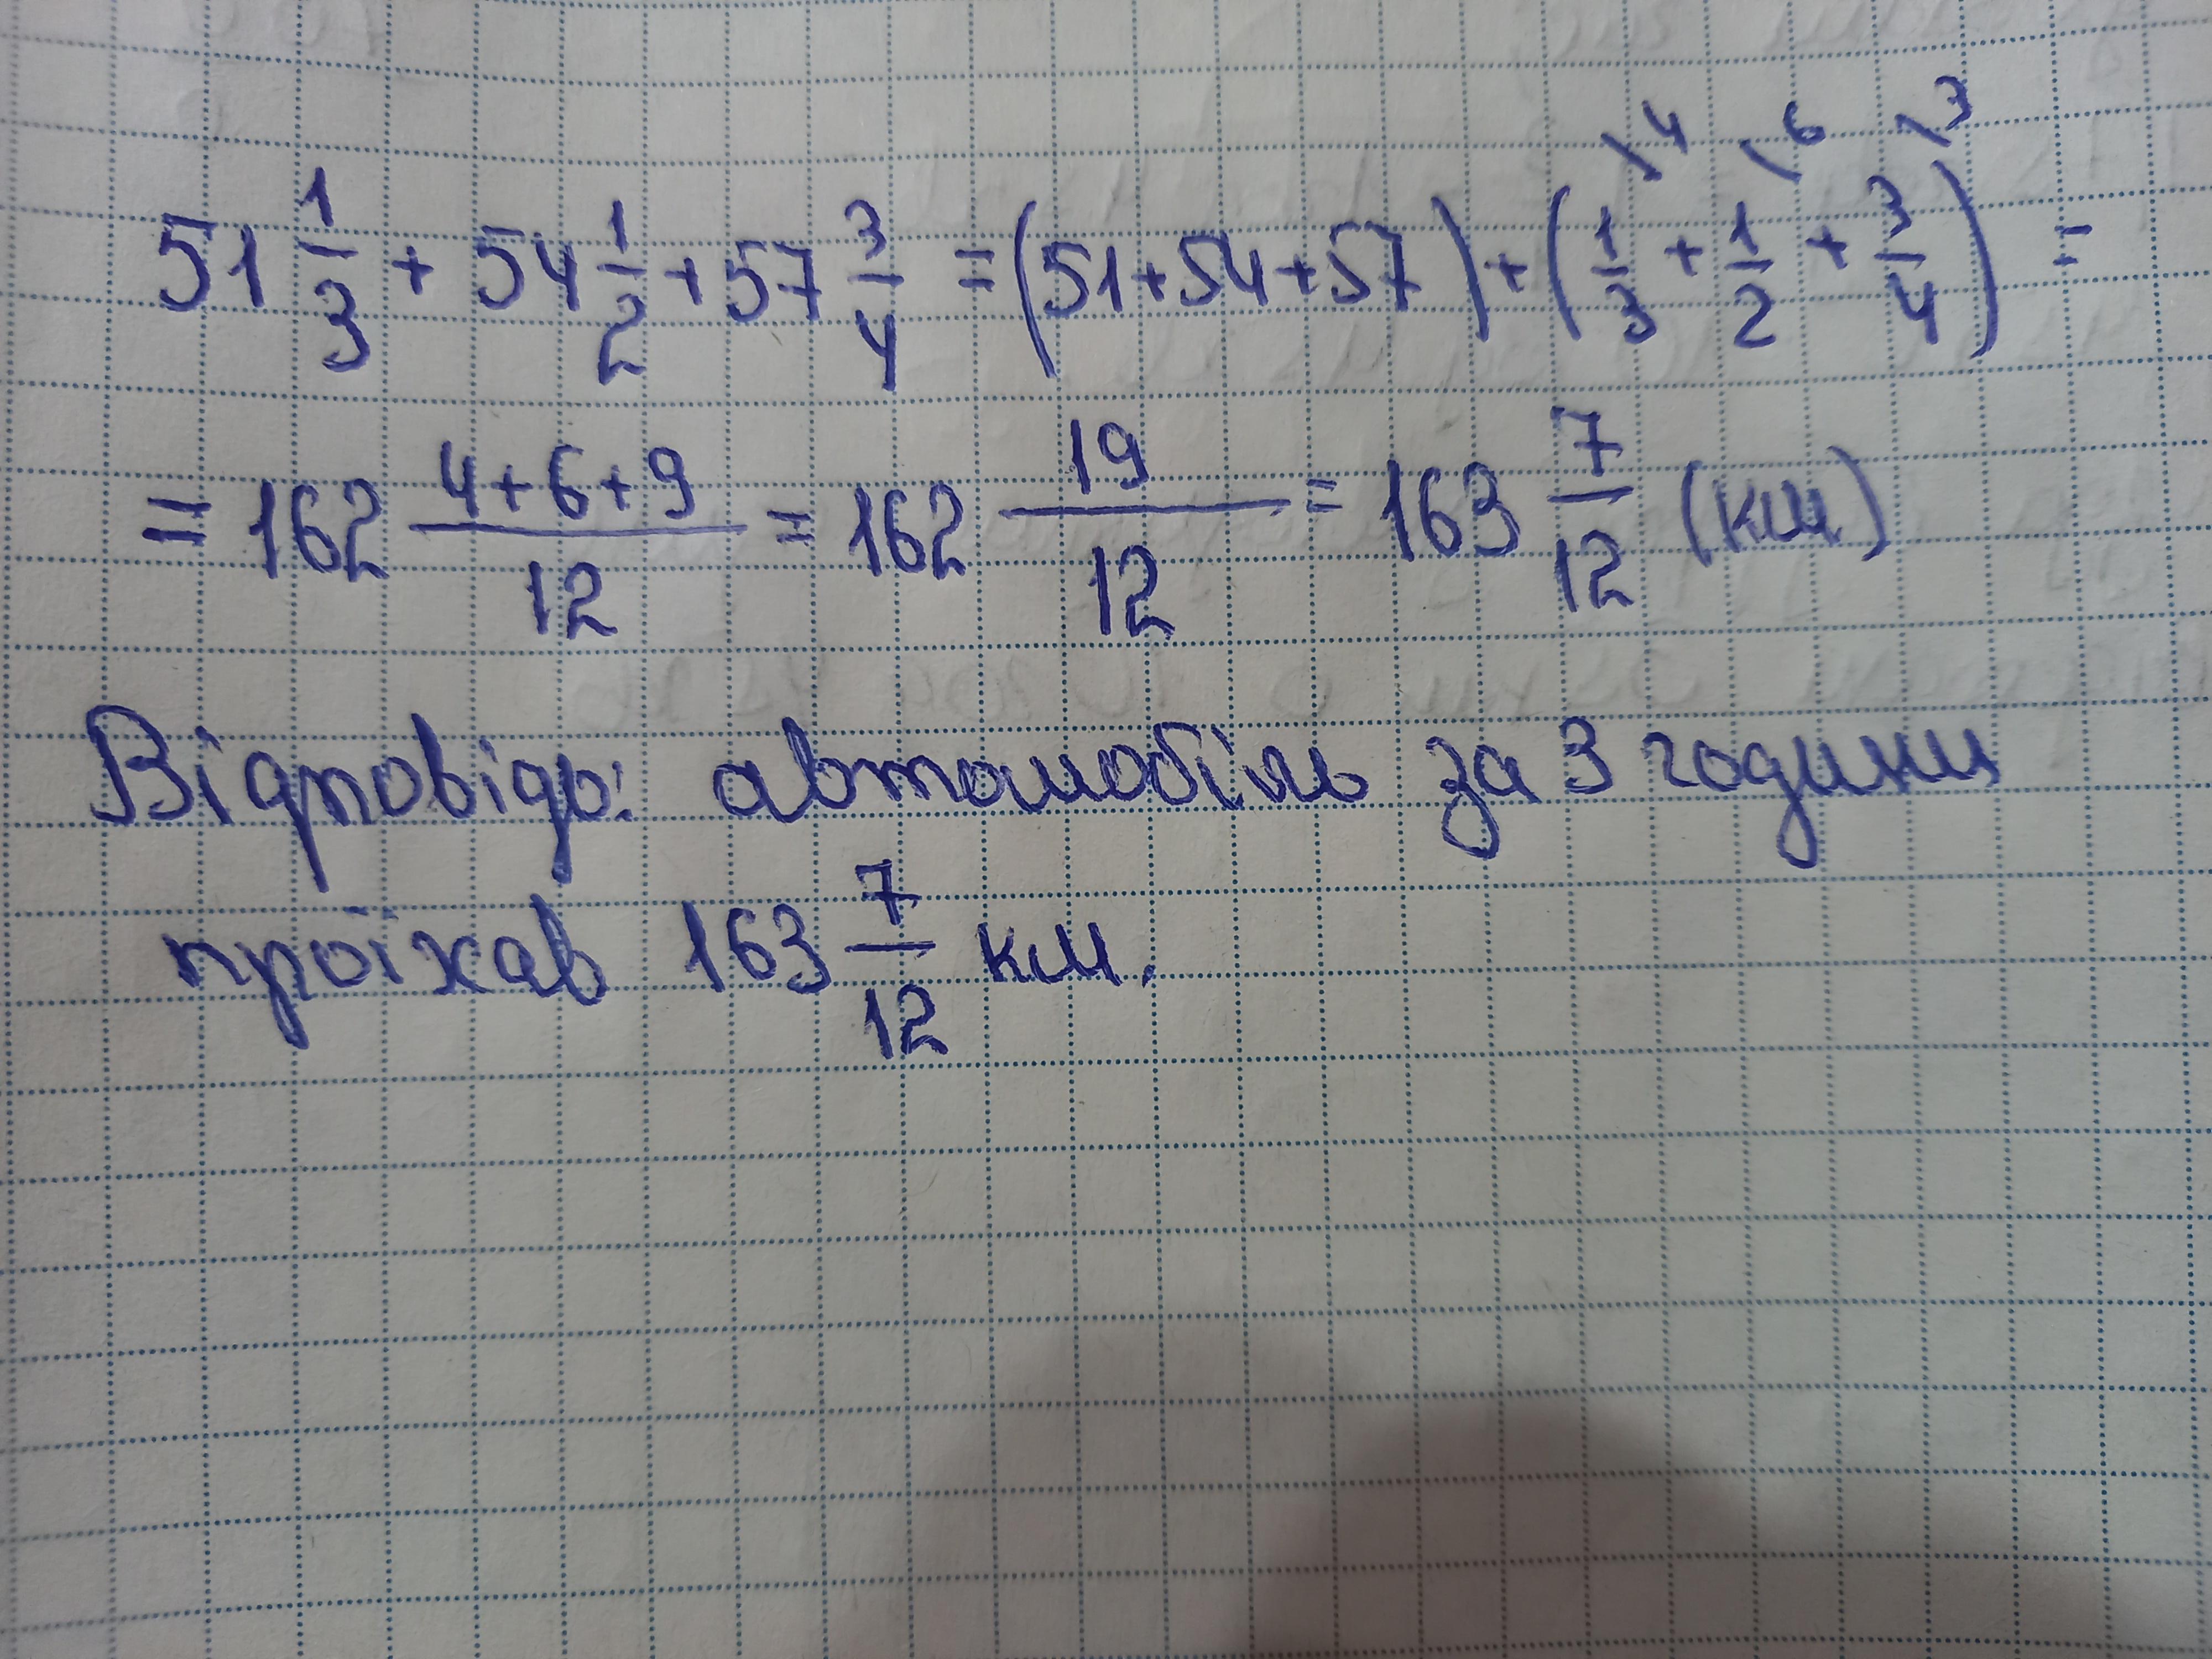 \4 \6 \3
51 1/3 + 54 1/2 + 57 3/4 = (51+54+57) + (1/3 + 1/2 + 3/4) =
= 162 4+6+9/12 = 162 19/12 = 163 7/12 (км)
Відповідь: автомобіль за 3 години
проїхав 163 7/12 км.